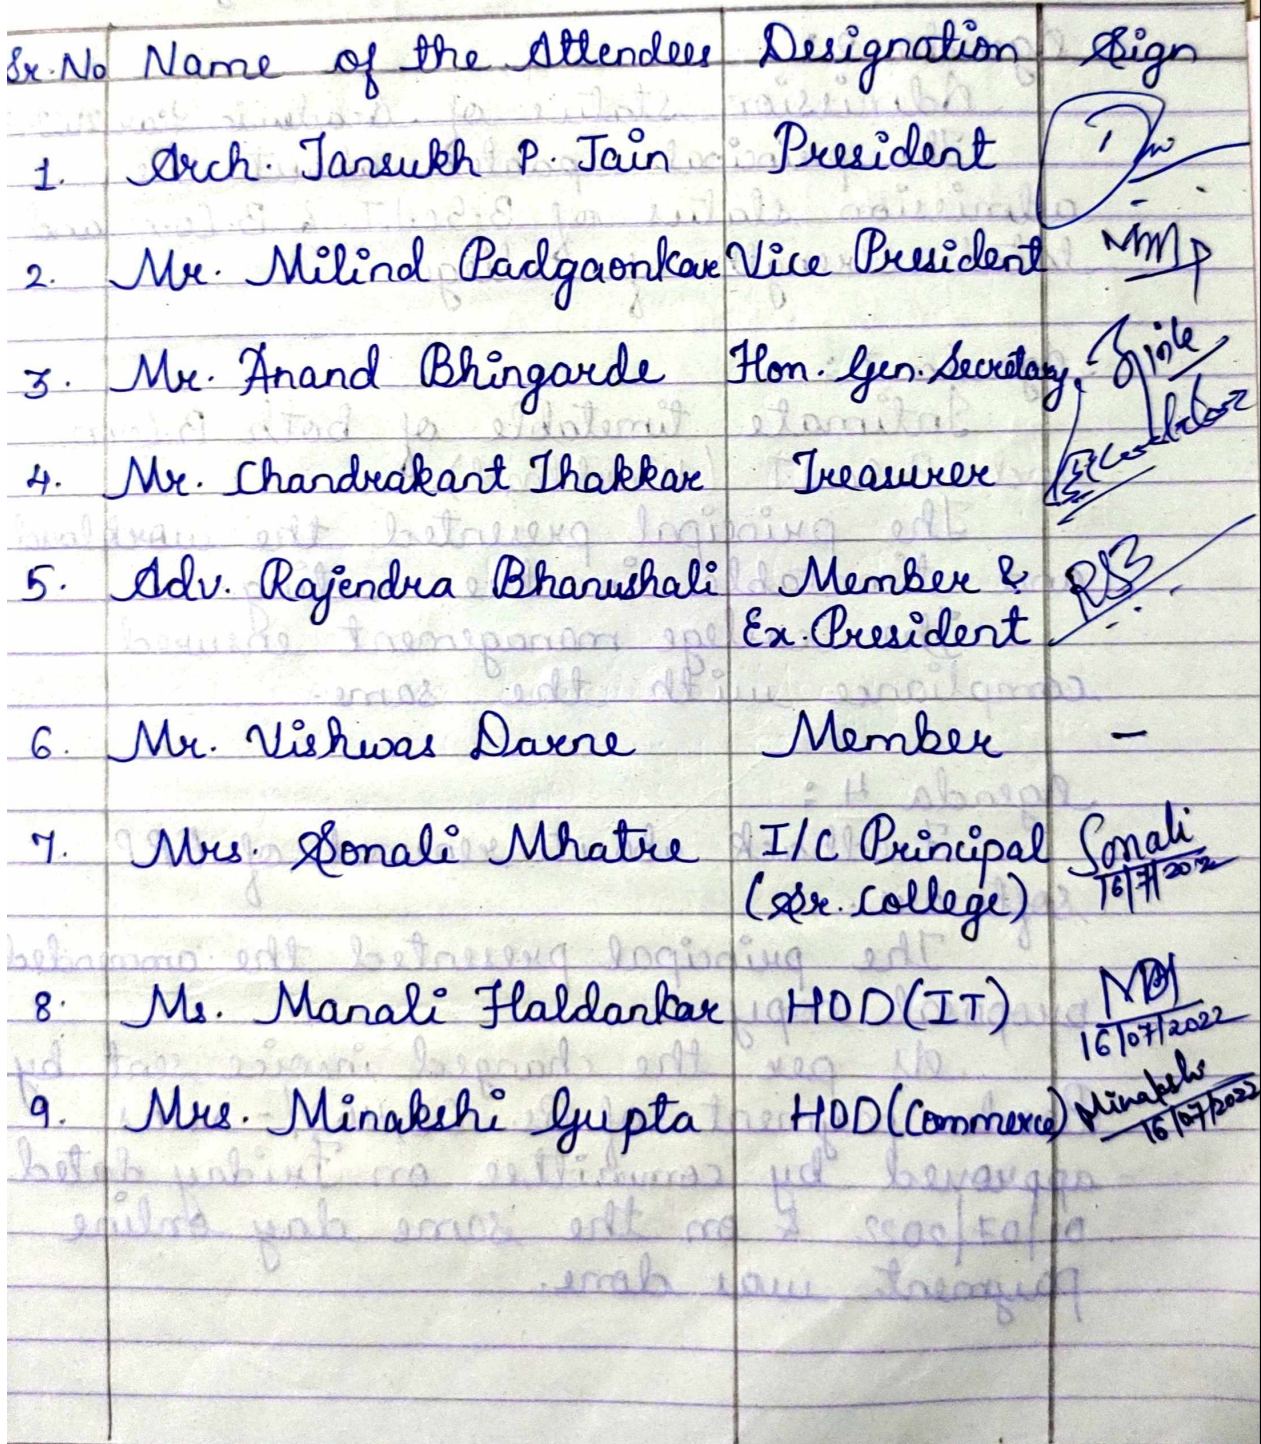 Sr. No Name of the Attendees Designation Sign
1. Arch. Tansukh P. Jain President
2. Mr. Milind Padgaonkar Vice President
3. Mr. Anand Bhingarde Hon. Gen. Secretary
4. Mr. Chandrakant Thakkar Treasurer
5. Adv. Rajendra Bhanushali Member &
Ex. President
6. Mr. Vishwas Darne Member -
7. Mrs. Sonali Mhatre I/C Principal Sonali
(Sr. College) 16/7/202
8. Ms. Manali Haldankar HOD (IT)
16/07/2022
9. Mrs. Minakshi Gupta HOD (Commerce) Minakshi
16/07/2022